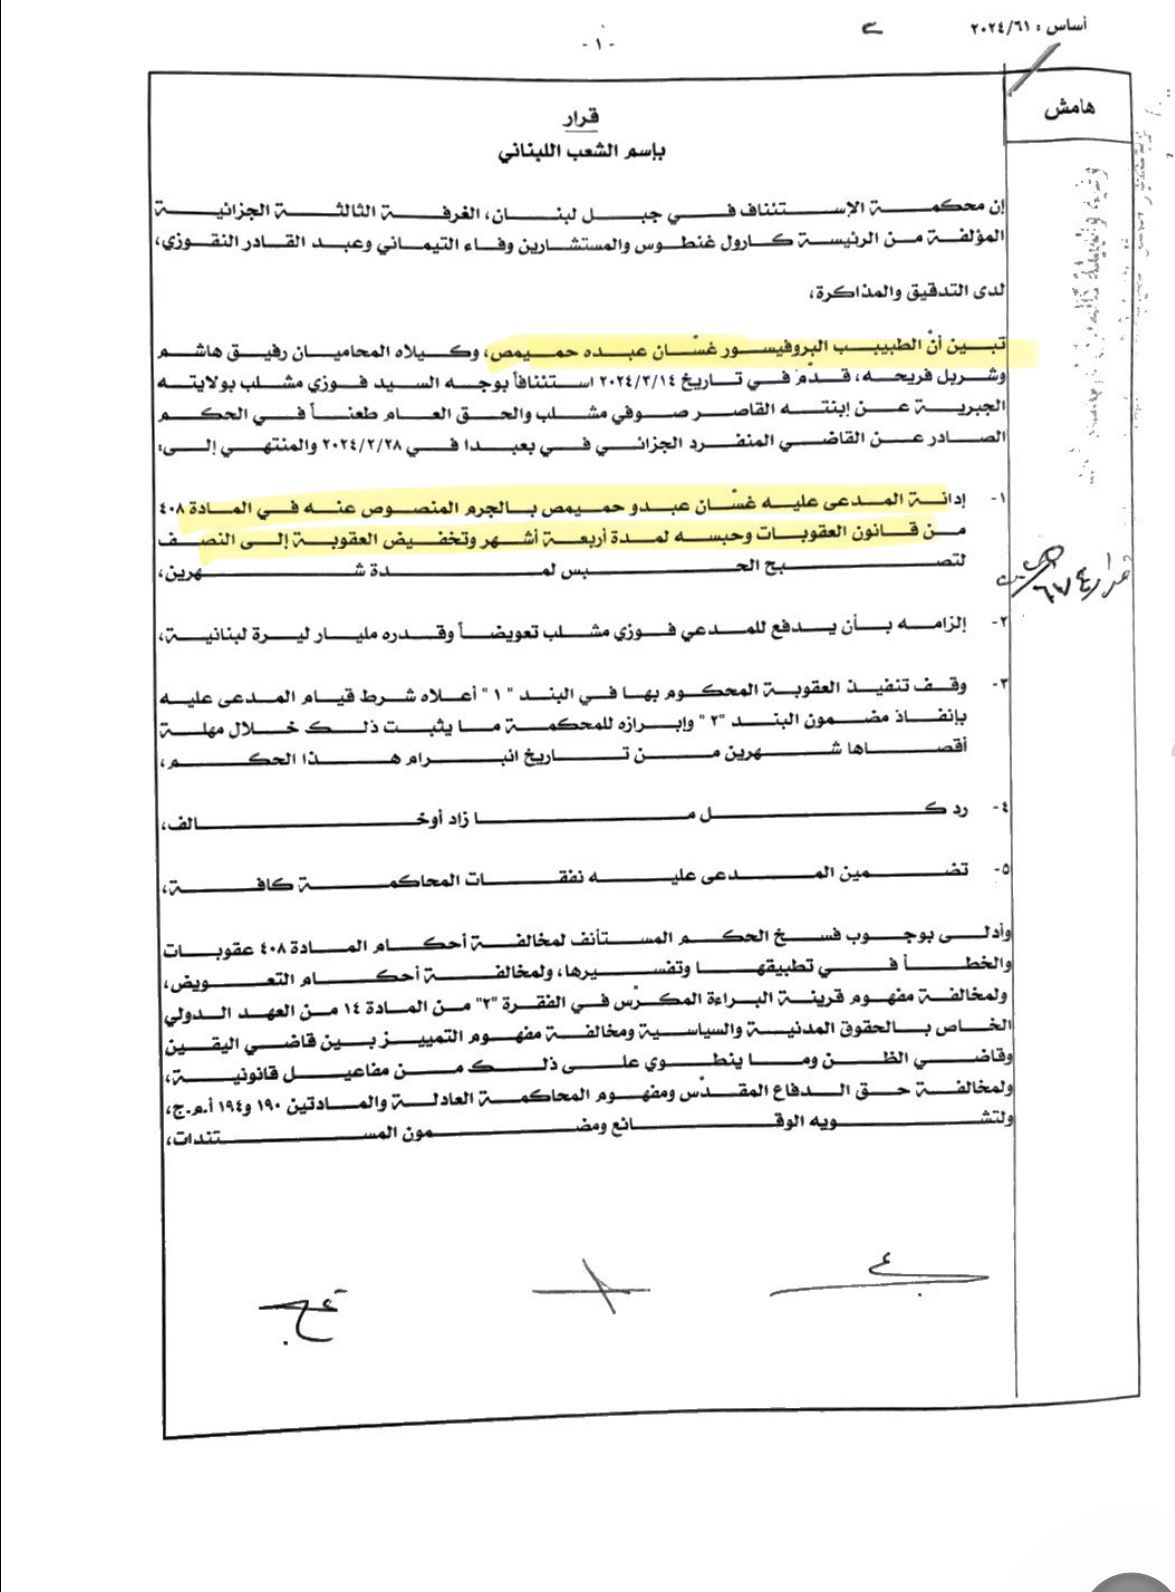 أساس : ٢٠٢٤/٦١
- ١ -
هامش
قرار
بإسم الشعب اللبناني
إن محكمة الإستئناف في جبل لبنان، الغرفة الثالثة الجزائية
المؤلفة من الرئيسة كارول غنطوس والمستشارين وفاء التيماني وعبد القادر النقوزي،
لدى التدقيق والمذاكرة،
تبين أنّ الطبيب البروفيسور غسّان عبده حميمص، وكيلاه المحاميان رفيق هاشم
وشربل فريحه، قدّم في تاريخ ٢٠٢٤/٣/١٤ استئنافاً بوجه السيد فوزي مشلب بولايته
الجبرية عن إبنته القاصر صوفي مشلب والحق العام طعناً في الحكم
الصادر عن القاضي المنفرد الجزائي في بعبدا في ٢٠٢٤/٢/٢٨ والمنتهي إلى:
١- إدانة المدعى عليه غسّان عبدو حميمص بالجرم المنصوص عنه في المادة ٤٠٨
من قانون العقوبات وحبسه لمدة أربعة أشهر وتخفيض العقوبة إلى النصف
لتصبح الحبس لمدة شهرين،
٢- إلزامه بأن يدفع للمدعي فوزي مشلب تعويضاً وقدره مليار ليرة لبنانية،
٣- وقف تنفيذ العقوبة المحكوم بها في البند "١" أعلاه شرط قيام المدعى عليه
بإنفاذ مضمون البند "٢" وإبرازه للمحكمة ما يثبت ذلك خلال مهلة
أقصاها شهرين من تاريخ انبرام هذا الحكم،
٤- رد كل ما زاد أو خالف،
٥- تضمين المدعى عليه نفقات المحاكمة كافة،
وأدلى بوجوب فسخ الحكم المستأنف لمخالفة أحكام المادة ٤٠٨ عقوبات
والخطأ في تطبيقها وتفسيرها، ولمخالفة أحكام التعويض،
ولمخالفة مفهوم قرينة البراءة المكرّس في الفقرة "٢" من المادة ١٤ من العهد الدولي
الخاص بالحقوق المدنية والسياسية ومخالفة مفهوم التمييز بين قاضي اليقين
وقاضي الظن وما ينطوي على ذلك من مفاعيل قانونية،
ولمخالفة حق الدفاع المقدّس ومفهوم المحاكمة العادلة والمادتين ١٩٠ و١٩٤ أ.م.ج،
ولتشويه الوقائع ومضمون المستندات،